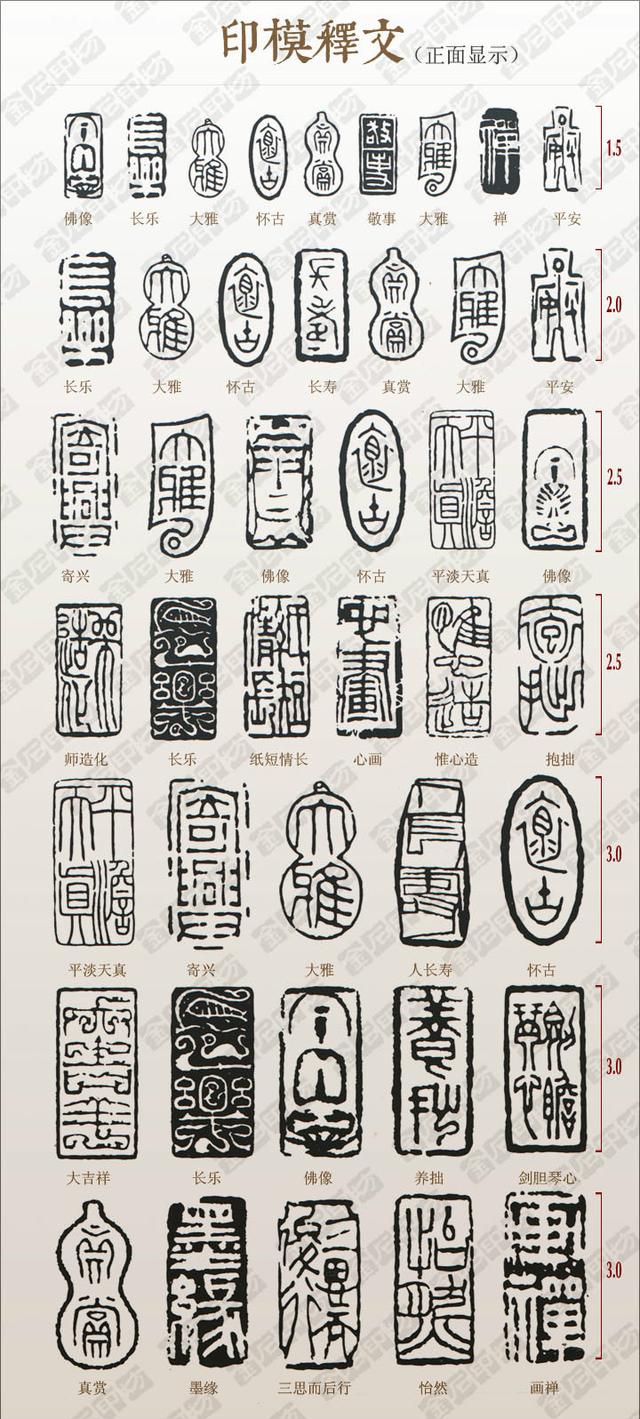 印模釋文（正面显示）
1.5
佛像 长乐 大雅 怀古 真赏 敬事 大雅 禅 平安
2.0
长乐 大雅 怀古 长寿 真赏 大雅 平安
2.5
寄兴 大雅 佛像 怀古 平淡天真 佛像
2.5
师造化 长乐 纸短情长 心画 惟心造 抱拙
3.0
平淡天真 寄兴 大雅 人长寿 怀古
3.0
大吉祥 长乐 佛像 养拙 剑胆琴心
3.0
真赏 墨缘 三思而后行 怡然 画禅